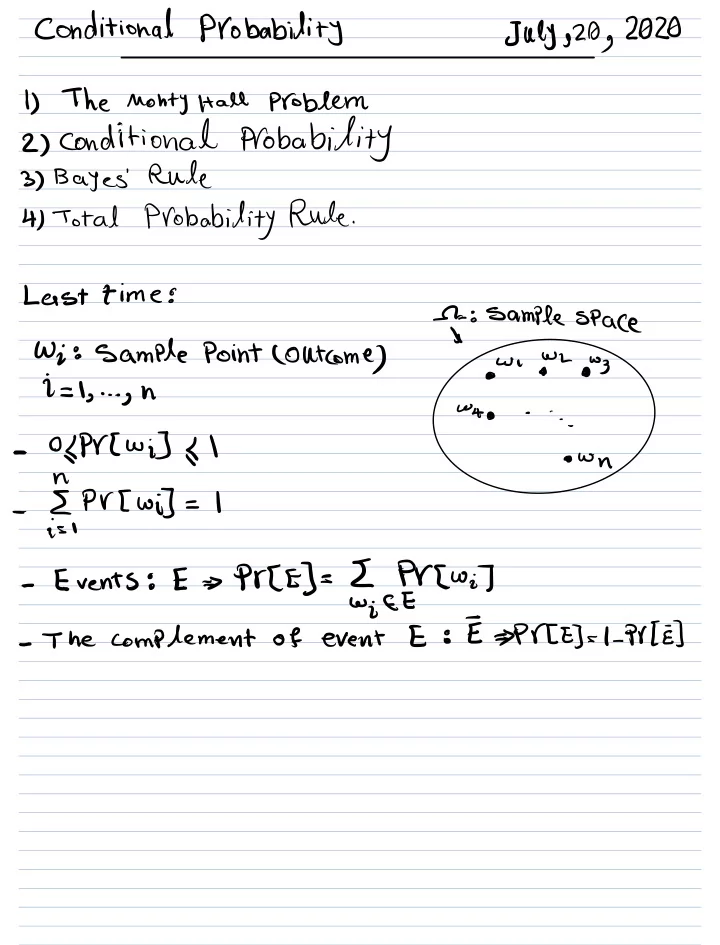 Conditional Probability July,20, 2020
1) The Monty Hall Problem
2) Conditional Probability
3) Bayes' Rule
4) Total Probability Rule.
Last time:
Ω: Sample space
ωi: Sample Point (Outcome)
i=1, ..., n
ω1 ω2 ω3
ω4
ωn
- 0≤Pr[ωi] ≤ 1
- n∑i=1 Pr[ωi] = 1
- Events: E ⇒ Pr[E]= ∑ωi∈E Pr[ωi]
- The complement of event E : Ē ⇒Pr[E]=1-Pr[Ē]